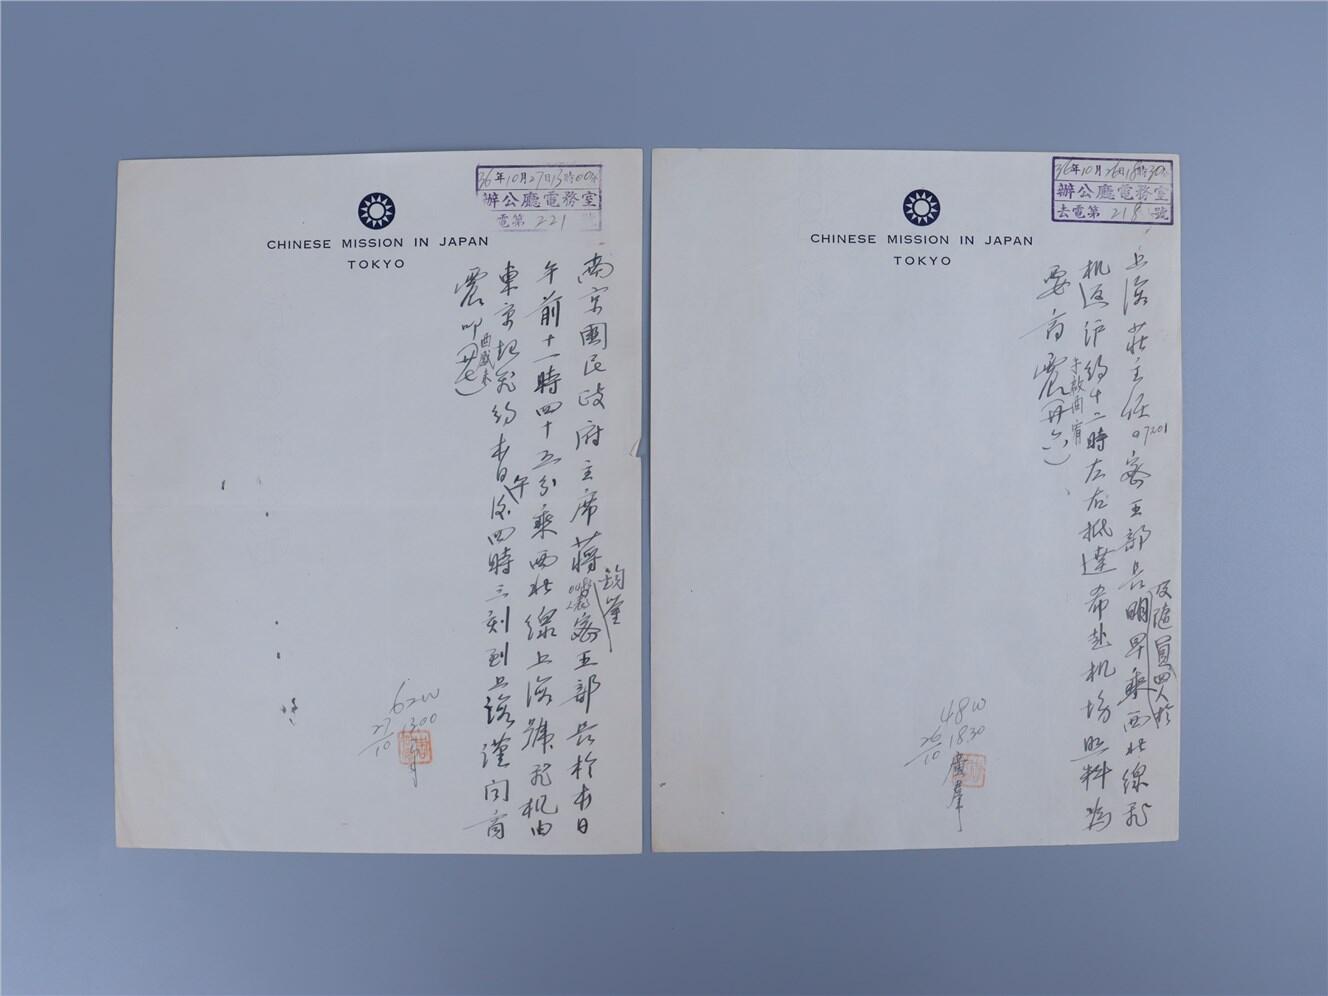 36年10月26日18時30分
辦公廳電務室
去電第218號
CHINESE MISSION IN JAPAN
TOKYO
上海莊主任。7201密王部長及隨員四人於明早乘西北線飛
机返沪約十二時左右抵達希赴机場照料為
要商震
48W
26/10 1830
36年10月27日13時00分
辦公廳電務室
電第221號
CHINESE MISSION IN JAPAN
TOKYO
南京國民政府主席蔣鈞鑒密王部長於本日
午前十一時四十五分乘西北線上海號飛机由
東京起飛約本日午後四時三刻到上海謹聞商
震叩
62W
27/10 1300